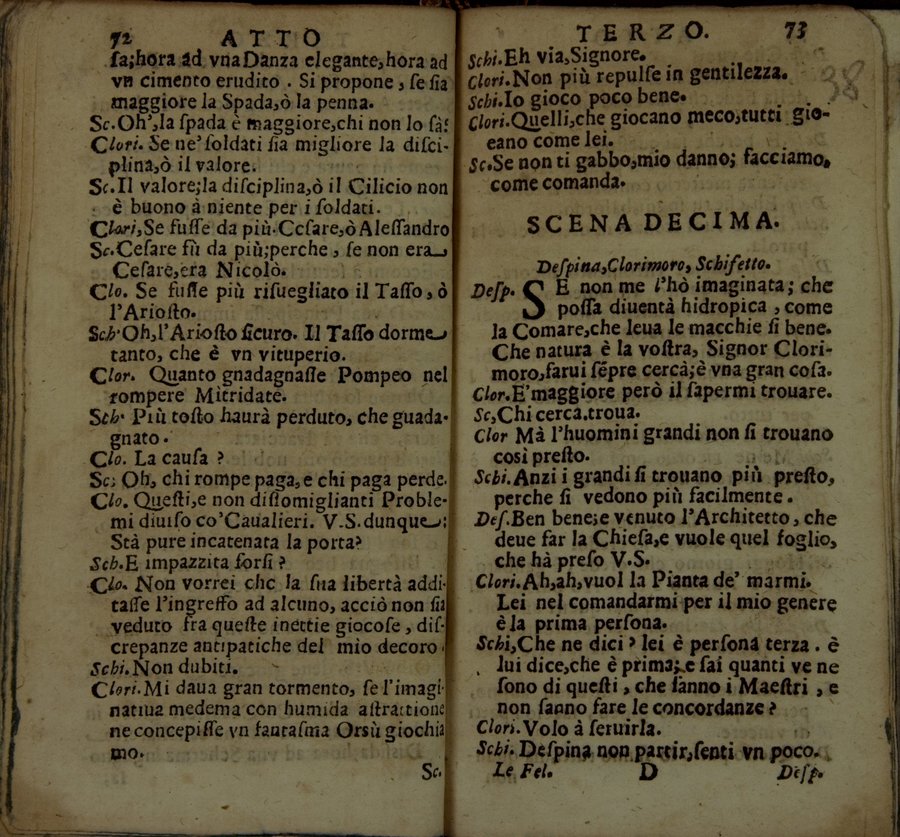 72 ATTO
ſa;hora ad vna Danza elegante,hora ad
vn cimento erudito . Si propone , ſe ſia
maggiore la Spada,ò la penna.
Sc. Oh',la ſpada è maggiore,chi non lo sà?
Clori. Se ne' ſoldati ſia migliore la diſci-
plina,ò il valore.
Sc. Il valore;la diſciplina,ò il Cilicio non
è buono à niente per i ſoldati.
Clori, Se fuſſe da più.Ceſare,ò Aleſſandro
Sc. Ceſare fù da più;perche , ſe non era
Ceſare,era Nicolò.
Clo. Se fuſſe più riſuegliato il Taſſo , ò
l'Arioſto.
Sch. Oh,l'Arioſto ſicuro. Il Taſſo dorme
tanto, che è vn vituperio.
Clor. Quanto gnadagnaſſe Pompeo nel
rompere Mitridate.
Sch. Più toſto haurà perduto, che guada-
gnato.
Clo. La cauſa ?
Sc; Oh, chi rompe paga,e chi paga perde.
Clo. Queſti,e non diſſomiglianti Proble-
mi diuiſo co'Caualieri. V.S.dunque;
Stà pure incatenata la porta?
Sch. E impazzita forſi ?
Clo. Non vorrei che la ſua libertà addi-
taſſe l'ingreſſo ad alcuno, acciò non ſia
veduto fra queſte inettie giocoſe , diſ-
crepanze antipatiche del mio decoro.
Schi. Non dubiti.
Clori. Mi daua gran tormento, ſe l'imagi-
natiua medema con humida aſtrattione
ne concepiſſe vn fantaſma Orsù giochia
mo.
Sc.
TERZO. 73
38
Schi. Eh via,Signore.
Clori. Non più repulſe in gentilezza.
Schi. Io gioco poco bene.
Clori. Quelli,che giocano meco,tutti gio-
eano come lei.
Sc. Se non ti gabbo,mio danno; facciamo,
come comanda.
SCENA DECIMA.
Deſpina,Clorimoro, Schifetto.
Deſp. SE non me l'hò imaginata; che
poſſa diuentà hidropica , come
la Comare,che leua le macchie ſi bene.
Che natura è la voſtra, Signor Clori-
moro,farui sẽpre cercà;è vna gran coſa.
Clor. E' maggiore però il ſapermi trouare.
Sc, Chi cerca.troua.
Clor Mà l'huomini grandi non ſi trouano
così preſto.
Schi. Anzi i grandi ſi trouano più preſto,
perche ſi vedono più facilmente .
Deſ. Ben bene;e venuto l'Architetto , che
deue far la Chieſa,e vuole quel foglio,
che hà preſo V.S.
Clori. Ah,ah,vuol la Pianta de' marmi.
Lei nel comandarmi per il mio genere
è la prima perſona.
Schi, Che ne dici ? lei è perſona terza . è
lui dice,che è prima;e ſai quanti ve ne
ſono di queſti , che fanno i Maeſtri , e
non ſanno fare le concordanze ?
Clori. Volo à ſeruirla.
Schi. Deſpina non partir,ſenti vn poco.
Le Fel. D Deſp.